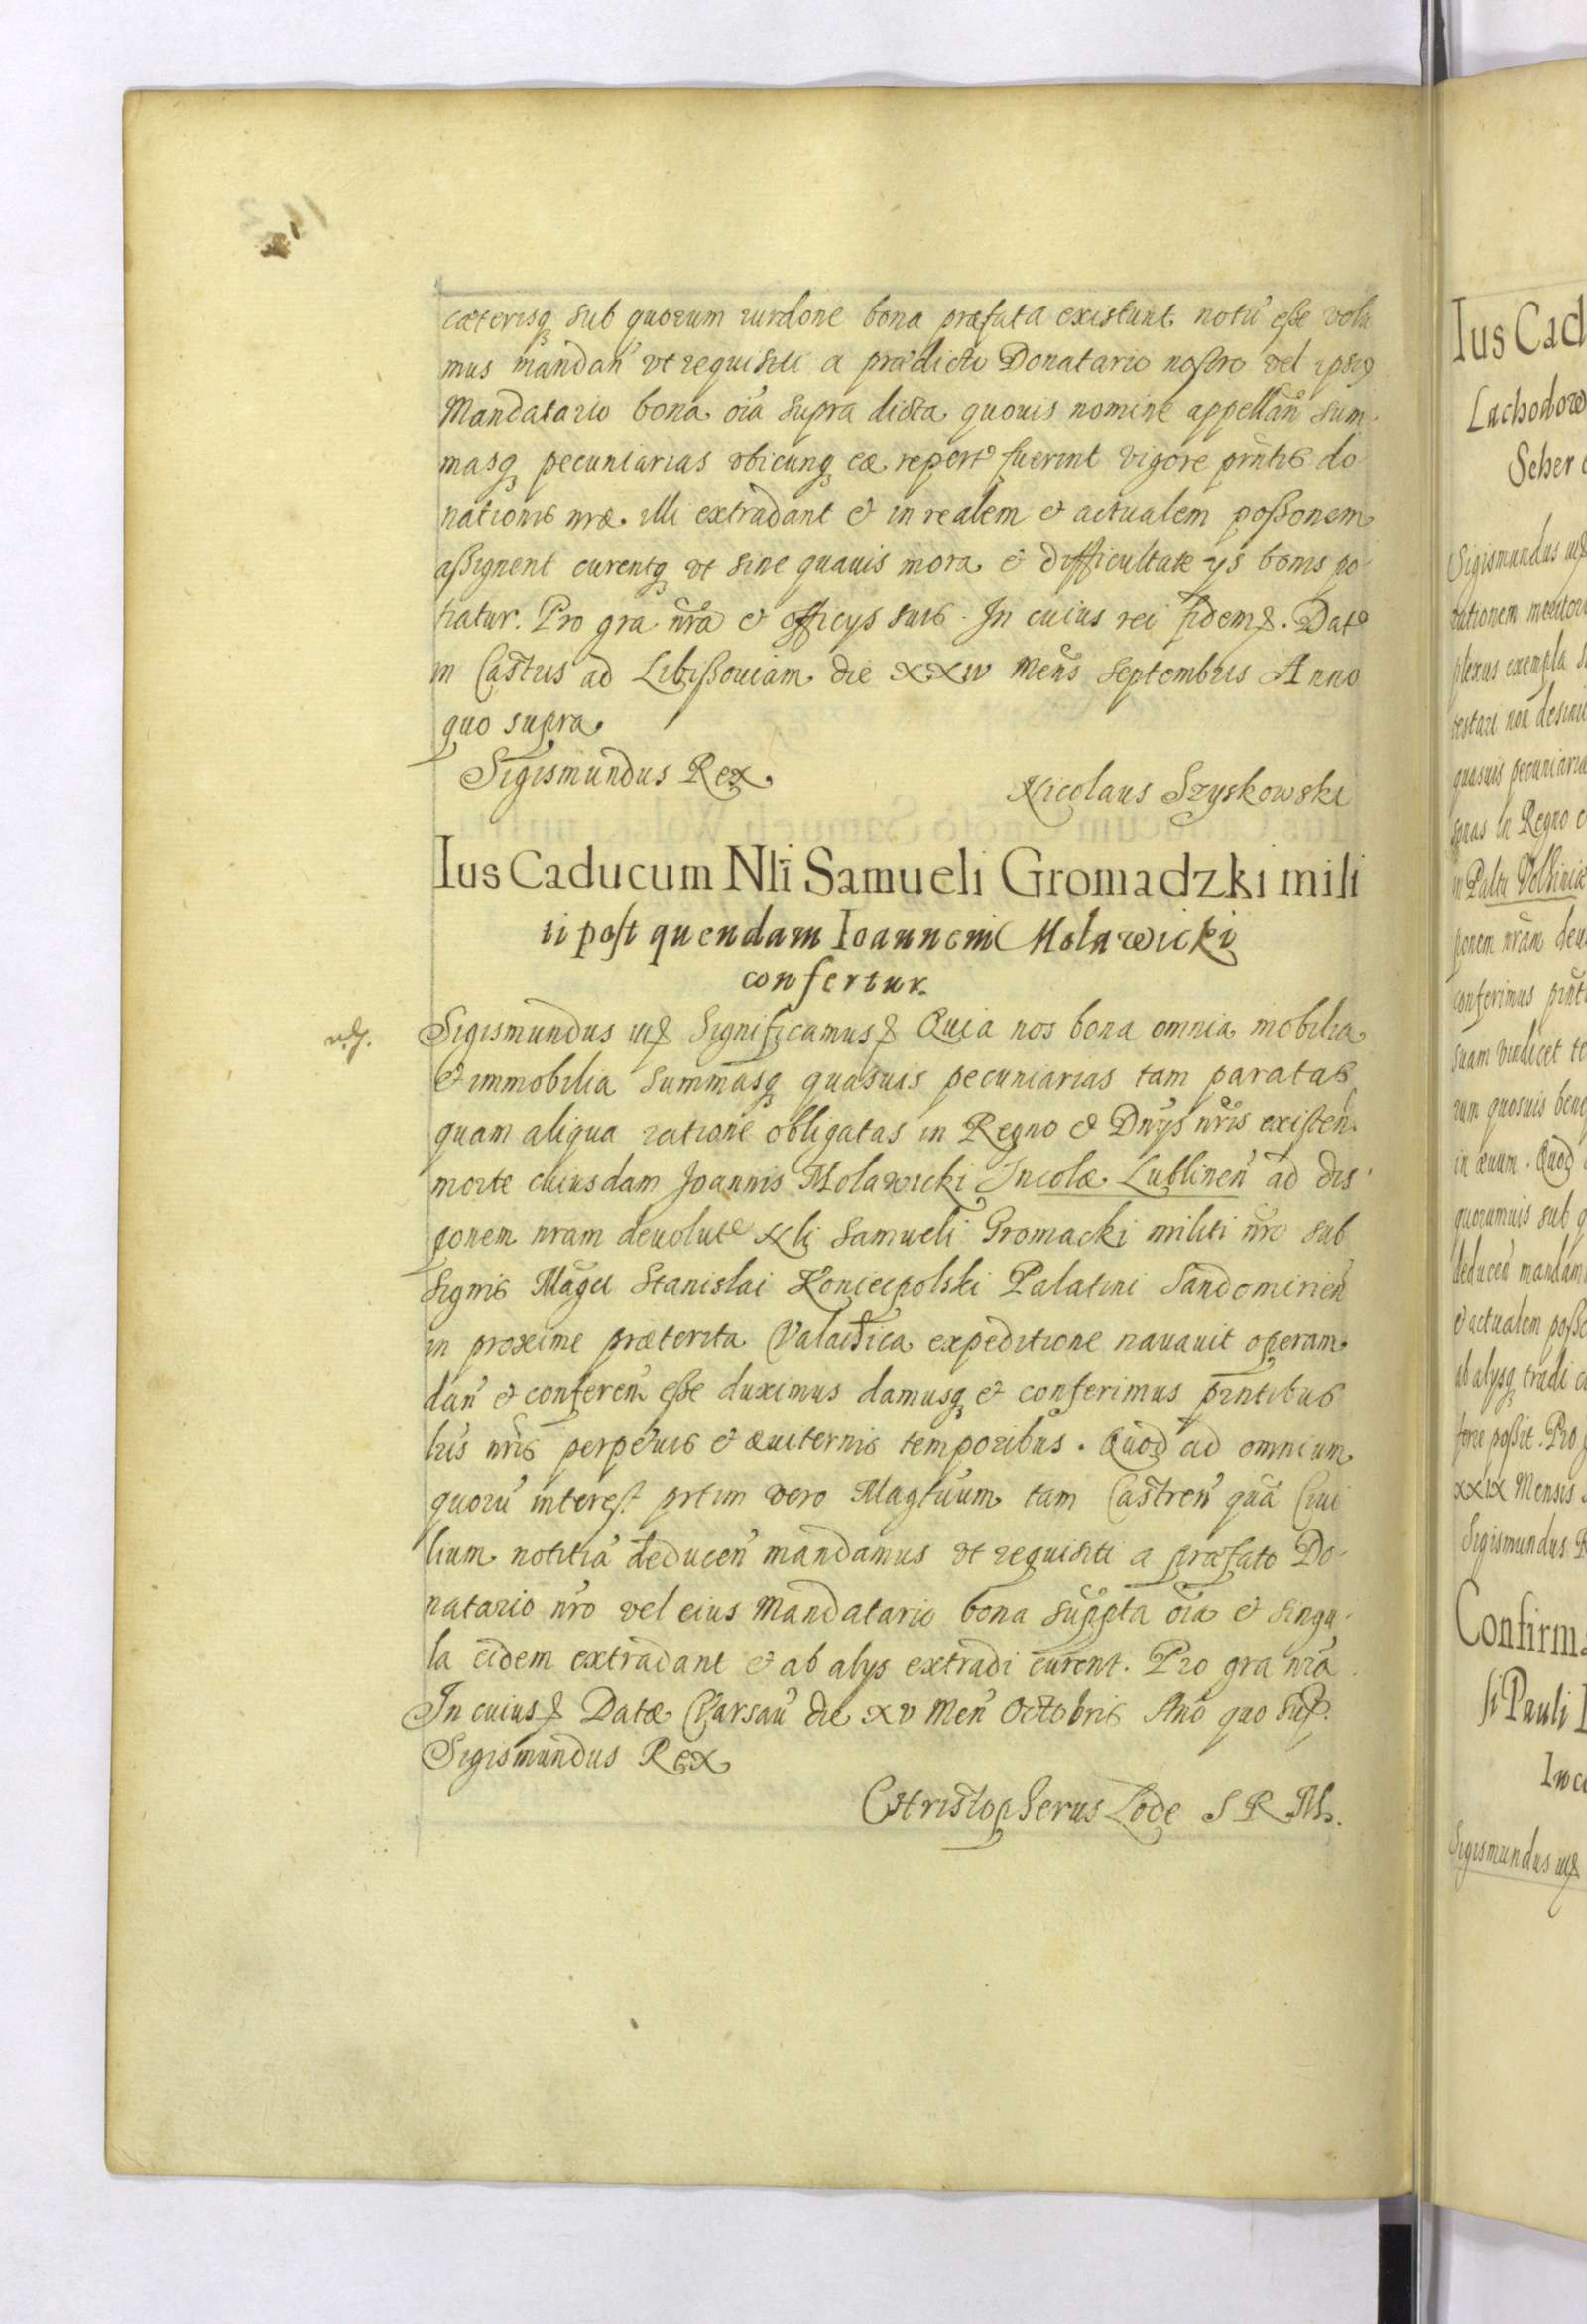 cæterisq sub quorum iurdone bona præfata existunt notū eße volu
mus mandan̄ vt requisiti a prædicto Donatario nostro vel ipsiq
Mandatario bona oīa supra dicta quouis nomine appellan̄ sum
masq pecuniarias vbicunq eæ repertæ fuerint vigore pn̄tis do
nationis nr̄æ illi extradant & in realem & actualem poßonem
aßignent curentq vt sine quauis mora & difficultate ys bonis po
tiatur. Pro gra nr̄a & officys suis. In cuius rei fidem &. Datæ
in Castris ad Libißouiam die XXIV Mens̄ Septembris Anno
quo supra
Sigismundus Rex
Nicolaus Szyskowski
Ius Caducum Nlī Samueli Gromadzki mili
ti post quendam Ioannem Molawicki
confertur.
Sigismundus III & Significamus & Quia nos bona omnia mobilia
& immobilia summasq quasuis pecuniarias tam paratas
quam aliqua ratione obligatas in Regno & Dn̄ys nr̄is existen̄
morte cuiusdam Joannis Molawicki Incolæ Lublinen̄ ad dis
ponem nram deuolutæ Nli Samueli Gromacki militi nr̄o sub
signis Magci Stanislai Koniecpolski Palatini Sandomirien̄
in proxime præterita Valachica expeditione nauauit operam
dan̄ & conferen̄ eße duximus damusq & conferimus pn̄tibus
lris nr̄is perpetuis & æuiternis temporibus. Quod ad omnium
quorū interest prtim vero Magtuum tam Castren̄ quā Ciui
lium notitiā deducen̄ mandamus vt requisiti a præfato Do
natario nr̄o vel eius Mandatario bona suppta oīa & singu
la eidem extradant & ab alys extradi curent. Pro gra nr̄a
In cuius & Datæ Varsau̇ die XV Men̄ Octobris Ano quo sup.
Sigismundus Rex
Christopherus Lode S R M.
Ius Cad
Lachodow
Sigismundus III &
rationem
plexus exempla
testari non
quasuis pecuniaria
in Regno
in Paltu Volhiniæ
ponem nr̄am deu
conferimus pn̄t
suam vindicet
rum quosuis
in æuum. Quod
quorumuis sub
deducen̄ mandam
& actualem poßo
ab alysq tradi
poßit. Pro
XXIX Mensis
Sigismundus R
Confirma
si Pauli
Inco
Sigismundus III &